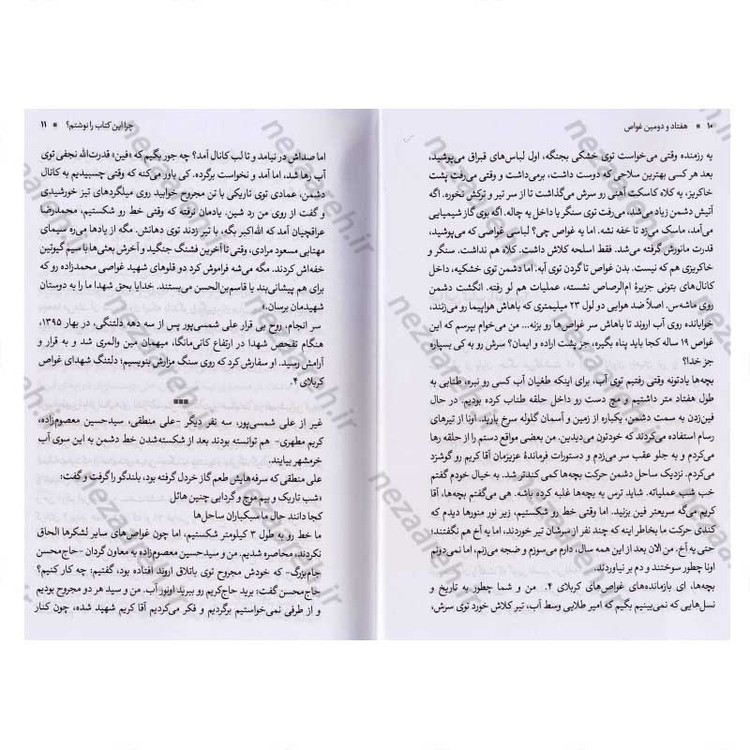 ۱۰ ■ هفتاد و دومین غواص
یه رزمنده وقتی می‌خواست توی خشکی بجنگه، اول لباس‌های قبراق می‌پوشید،
بعد هر کسی بهترین سلاحی که دوست داشت، برمی‌داشت و وقتی می‌رفت پشت
خاکریز، یه کلاه کاسکت آهنی رو سرش می‌گذاشت تا از سر تیر و ترکش نخوره. اگه
آتیش دشمن زیاد می‌شد، می‌رفت توی سنگر یا داخل یه چاله. اگه بوی گاز شیمیایی
می‌آمد، ماسک می‌زد تا خفه نشه. اما یه غواص چی؟ لباسی غواصی که می‌پوشید،
قدرت مانورش گرفته می‌شد. فقط اسلحه کلاش داشت. کلاه هم نداشت. سنگر و
خاکریزی هم که نیست. بدن غواص تا گردن توی آبه. اما دشمن توی خشکیه، داخل
کانال‌های بتونی جزیرهٔ ام‌الرصاص نشسته، عملیات هم لو رفته. انگشت دشمن
روی ماشه‌س. اصلاً ضد هوایی دو لول ۲۳ میلیمتری که باهاش هواپیما رو می‌زنند،
خوابانده روی آب اروند تا باهاش سر غواص‌ها رو بزنه... من می‌خوام بپرسم که این
غواص ۱۹ ساله کجا باید پناه بگیره، جز پشت اراده و ایمان؟ سرش رو به کی بسپاره
جز خدا؟
بچه‌ها یادتونه وقتی رفتیم توی آب، برای اینکه طغیان آب کسی رو نبره، طنابی به
طول هفتاد متر داشتیم و مچ دست رو داخل حلقه طناب کرده بودیم. در حال
فین‌زدن به سمت دشمن، یکباره از زمین و آسمان گلوله سرخ بارید. اونا از تیرهای
رسام استفاده می‌کردند که خودتون می‌دیدین. من بعضی مواقع دستم را از حلقه رها
می‌کردم و به جلو و عقب سر می‌زدم و دستورات فرماندهٔ عزیزمان آقا کریم رو گوشزد
می‌کردم. نزدیک ساحل دشمن حرکت بچه‌ها کمی کندتر شد. به خیال خودم گفتم
خب شب عملیاته. شاید ترس به بچه‌ها غلبه کرده باشه. هی می‌گفتم بچه‌ها، آقا
کریم می‌گه سریعتر فین بزنید. اما وقتی خط رو شکستیم، زیر نور منورها دیدم که
کندی حرکت ما بخاطر اینه که چند نفر از سرشان تیر خوردند، اما یه آخ هم نگفتند؛
حتی یه آخ. من الان بعد از این همه سال، دارم می‌سوزم و ضجه می‌زنم، اما نمی‌دونم
اونا چطور سوختند و دم بر نیاوردند.
بچه‌ها، ای بازمانده‌های غواص‌های کربلای ۴. من و شما چطور به تاریخ و
نسل‌هایی که نمی‌بینیم بگیم که امیر طلایی وسط آب، تیر کلاش خورد توی سرش،
چرا این کتاب را نوشتم؟ ■ ۱۱
اما صداش در نیامد و تا لب کانال آمد؟ چه جور بگیم که «فین» قدرت‌الله نجفی توی
آب رها شد، اما آمد و نخواست برگرده. کی باور می‌کنه که وقتی چسبیدیم به کانال
دشمن، عمادی توی تاریکی با تن مجروح خوابید روی میلگردهای تیز خورشیدی
و گفت از روی من رد شین. یادمان نرفته که وقتی خط رو شکستیم، محمدرضا
عراقچیان آمد که الله‌اکبر بگه، با تیر زدند توی دهانش. مگه از یادها می‌ره سیمای
مهتابی مسعود مرادی، وقتی تا آخرین فشنگ جنگید و آخرش بعثی‌ها با سیم گیوتین
خفه‌اش کردند. مگه می‌شه فراموش کرد دو قلوهای شهید غواصی محمدزاده رو که
برای هم پیشانی‌بند یا قاسم‌بن‌الحسن می‌بستند. خدایا بحق شهدا ما را به دوستان
شهیدمان برسان.»
سر انجام، روح بی قرار علی شمسی‌پور پس از سه دهه دلتنگی، در بهار ۱۳۹۵،
هنگام تفحص شهدا در ارتفاع کانی‌مانگا، میهمان مین والمری شد و به قرار و
آرامش رسید. او سفارش کرد که روی سنگ مزارش بنویسیم: دلتنگ شهدای غواص
کربلای ۴.
■■■
غیر از علی شمسی‌پور، سه نفر دیگر -علی منطقی، سیدحسین معصوم‌زاده،
کریم مطهری- هم توانسته بودند بعد از شکسته‌شدن خط دشمن به این سوی آب
خرمشهر بیایند.
علی منطقی که سرفه‌هایش طعم گاز خردل گرفته بود، بلندگو را گرفت و گفت:
«شب تاریک و بیم موج و گردابی چنین هائل
کجا دانند حال ما سبکباران ساحل‌ها
ما خط رو به طول ۳ کیلومتر شکستیم، اما چون غواص‌های سایر لشکرها الحاق
نکردند، محاصره شدیم. من و سیدحسین معصوم‌زاده به معاون گردان -حاج‌محسن
جام‌بزرگ- که خودش مجروح توی باتلاق اروند افتاده بود، گفتیم: چه کار کنیم؟
حاج‌محسن گفت: برید حاج‌کریم رو ببرید اونور آب. من و سید هر دو مجروح بودیم
و از طرفی نمی‌خواستیم برگردیم و فکر می‌کردیم آقا کریم شهید شده، چون کنار
nezaareh.ir